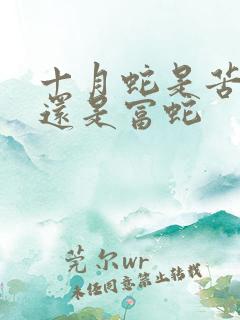 十月蛇是苦
還是富蛇
莞尔wr
未经同意禁止转载